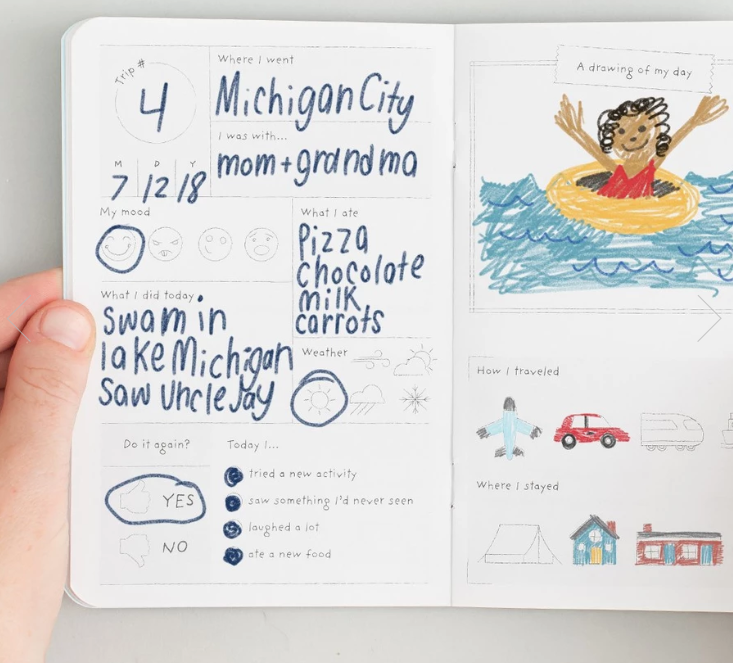 Trip #
4
M D Y
7/2/8
Where I went
Michigan City
I was with...
mom+grandma
My mood
What I ate
Pizza
chocolate
milk
carrots
What I did today
swam in
lake Michigan
saw Uncle Jay
Weather
Do it again?
YES
NO
Today I...
tried a new activity
saw something I'd never seen
laughed a lot
ate a new food
A drawing of my day
How I traveled
Where I stayed